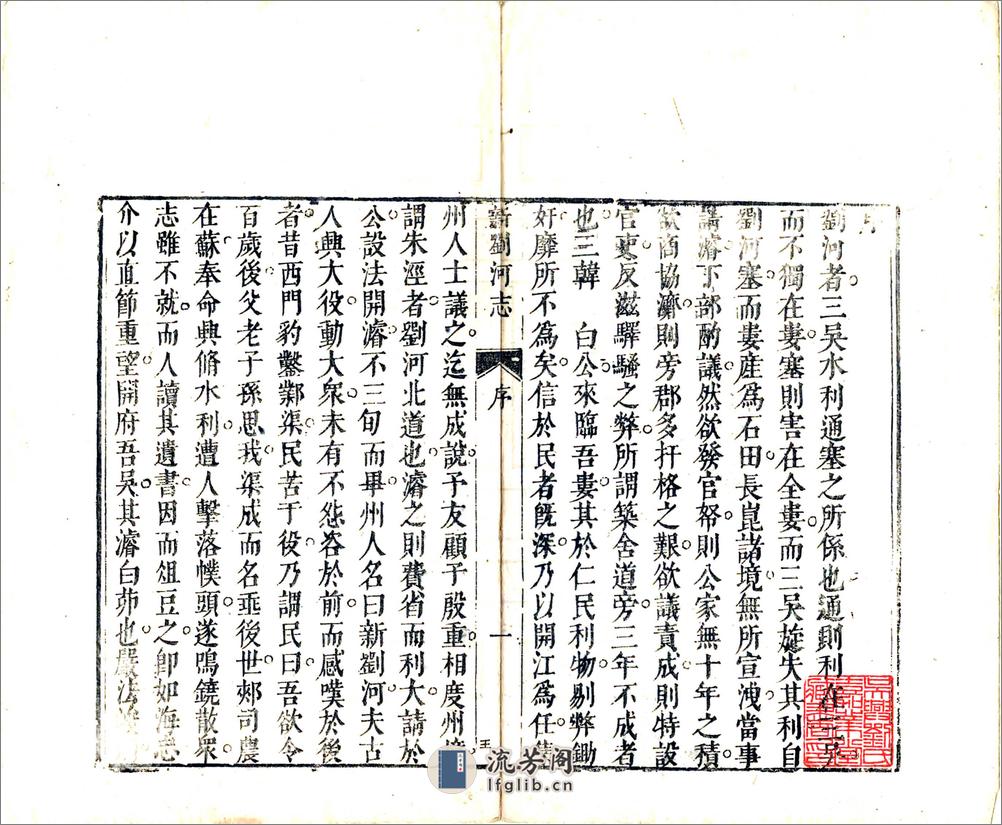 序
劉河者三吳水利通塞之所係也通則利在三吳
而不獨在婁塞則害在全婁而三吳旋失其利自
劉河塞而婁產爲石田長崑諸境無所宣洩當事
請濬下部酌議然欲發官帑則公家無十年之積
欲商協濟則旁郡多扞格之艱欲議責成則特設
官吏反滋驛騷之弊所謂築舍道旁三年不成者
也三韓 白公來臨吾婁其於仁民利物剔弊鋤
奸靡所不爲矣信於民者既深乃以開江爲任
新劉河志 序 一
州人士議之迄無成說予友顧子殷重相度州
謂朱涇者劉河北道也濬之則費省而利大請於
公設法開濬不三旬而畢州人名曰新劉河夫古
人興大役動大衆未有不怨咨於前而感嘆於後
者昔西門豹鑿鄴渠民苦于役乃謂民曰吾欲令
百歲後父老子孫思我渠成而名垂後世郟司農
在蘇奉命興脩水利遭人擊落幞頭遂鳴鐃散衆
志雖不就而人讀其遺書因而俎豆之卽如海忠
介以直節重望開府吾吳其濬白茆也嚴法
流芳阁
lfglib.cn